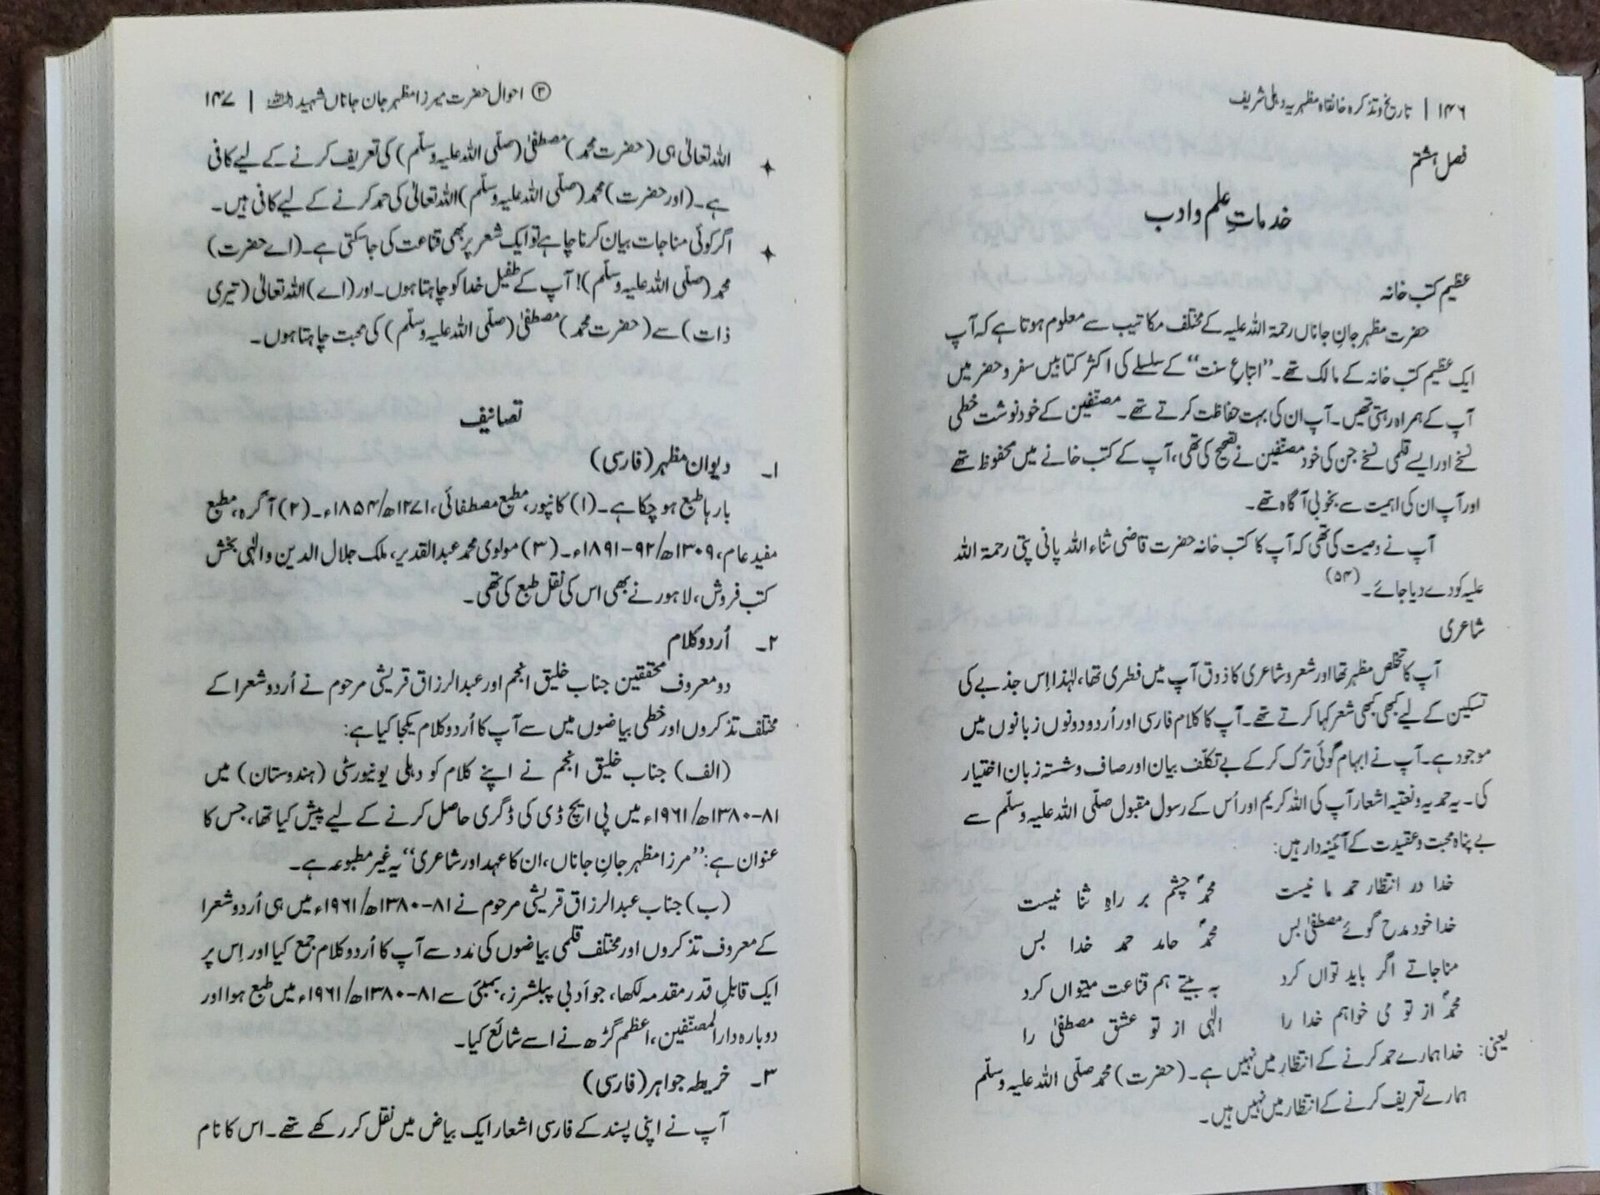 ۱۴۶ | تاریخ و تذکرہ خانقاہ مظہریہ دہلی شریف
فصل ہشتم
خدماتِ علم و ادب
عظیم کتب خانہ
حضرت مظہر جانِ جاناں رحمۃ اللہ علیہ کے مختلف مکاتیب سے معلوم ہوتا ہے کہ آپ
ایک عظیم کتب خانہ کے مالک تھے۔ ”اتباعِ سنت“ کے سلسلے کی اکثر کتابیں سفر و حضر میں
آپ کے ہمراہ رہتی تھیں۔ آپ ان کی بہت حفاظت کرتے تھے۔ مصنّفین کے خود نوشت خطی
نسخے اور ایسے قلمی نسخے جن کی خود مصنّفین نے تصحیح کی تھی، آپ کے کتب خانے میں محفوظ تھے
اور آپ ان کی اہمیت سے بخوبی آگاہ تھے۔
آپ نے وصیت کی تھی کہ آپ کا کتب خانہ حضرت قاضی ثناء اللہ پانی پتی رحمۃ اللہ
علیہ کو دے دیا جائے۔ (۵۴)
شاعری
آپ کا تخلص مظہر تھا اور شعر و شاعری کا ذوق آپ میں فطری تھا، لہٰذا اِس جذبے کی
تسکین کے لیے کبھی کبھی شعر کہا کرتے تھے۔ آپ کا کلام فارسی اور اُردو دونوں زبانوں میں
موجود ہے۔ آپ نے ابہام گوئی ترک کر کے بے تکلّف بیان اور صاف و شستہ زبان اختیار
کی۔ یہ حمدیہ و نعتیہ اشعار آپ کی اللہ کریم اور اُس کے رسول مقبول صلّی اللہ علیہ وسلّم سے
بے پناہ محبت و عقیدت کے آئینہ دار ہیں:
خدا در انتظارِ حمدِ ما نیست محمدؐ چشم بر راہِ ثنا نیست
خدا خود مدح گوئے مصطفیٰؐ بس محمدؐ حامد حمد خدا بس
مناجاتے اگر باید تواں کرد بہ بیتے ہم قناعت میتواں کرد
محمدؐ از تو می خواہم خدا را الٰہی از تو عشق مصطفیٰؐ را
یعنی: خدا ہمارے حمد کرنے کے انتظار میں نہیں ہے۔ (حضرت) محمد صلّی اللہ علیہ وسلّم
ہمارے تعریف کرنے کے انتظار میں نہیں ہیں۔
③ احوال حضرت میرزا مظہر جانِ جاناں شہیدؒ | ۱۴۷
✦ اللہ تعالیٰ ہی (حضرت محمد) مصطفیٰ (صلّی اللہ علیہ وسلّم) کی تعریف کرنے کے لیے کافی
ہے۔ (اور حضرت) محمد (صلّی اللہ علیہ وسلّم) اللہ تعالیٰ کی حمد کرنے کے لیے کافی ہیں۔
✦ اگر کوئی مناجات بیان کرنا چاہے تو ایک شعر پر بھی قناعت کی جا سکتی ہے۔ (اے حضرت)
محمد (صلّی اللہ علیہ وسلّم)! آپ کے طفیل خدا کو چاہتا ہوں۔ اور (اے) اللہ تعالیٰ (تیری
ذات) سے (حضرت محمد) مصطفیٰ (صلّی اللہ علیہ وسلّم) کی محبت چاہتا ہوں۔
تصانیف
۱۔ دیوان مظہر (فارسی)
بارہا طبع ہو چکا ہے۔ (۱) کانپور، مطبع مصطفائی، ۱۲۷۱ھ/۱۸۵۴ء۔ (۲) آگرہ، مطبع
مفید عام، ۱۳۰۹ھ/۹۲-۱۸۹۱ء۔ (۳) مولوی محمد عبدالقدیر، ملک جلال الدین و الٰہی بخش
کتب فروش، لاہور نے بھی اس کی نقل طبع کی تھی۔
۲۔ اُردو کلام
دو معروف محققین جناب خلیق انجم اور عبدالرزاق قریشی مرحوم نے اُردو شعرا کے
مختلف تذکروں اور خطی بیاضوں میں سے آپ کا اُردو کلام یکجا کیا ہے:
(الف) جناب خلیق انجم نے اپنے کلام کو دہلی یونیورسٹی (ہندوستان) میں
۸۱-۱۳۸۰ھ/۱۹۶۱ء میں پی ایچ ڈی کی ڈگری حاصل کرنے کے لیے پیش کیا تھا، جس کا
عنوان ہے: ”مرزا مظہر جانِ جاناں، ان کا عہد اور شاعری“ یہ غیر مطبوعہ ہے۔
(ب) جناب عبدالرزاق قریشی مرحوم نے ۸۱-۱۳۸۰ھ/۱۹۶۱ء میں ہی اُردو شعرا
کے معروف تذکروں اور مختلف قلمی بیاضوں کی مَدد سے آپ کا اُردو کلام جمع کیا اور اِس پر
ایک قابلِ قدر مقدمہ لکھا، جو اَدبی پبلشرز، بمبئی سے ۸۱-۱۳۸۰ھ/۱۹۶۱ء میں طبع ہوا اور
دوبارہ دارالمصنّفین، اعظم گڑھ نے اسے شائع کیا۔
۳۔ خریطہ جواہر (فارسی)
آپ نے اپنی پسند کے فارسی اشعار ایک بیاض میں نقل کر رکھے تھے۔ اس کا نام